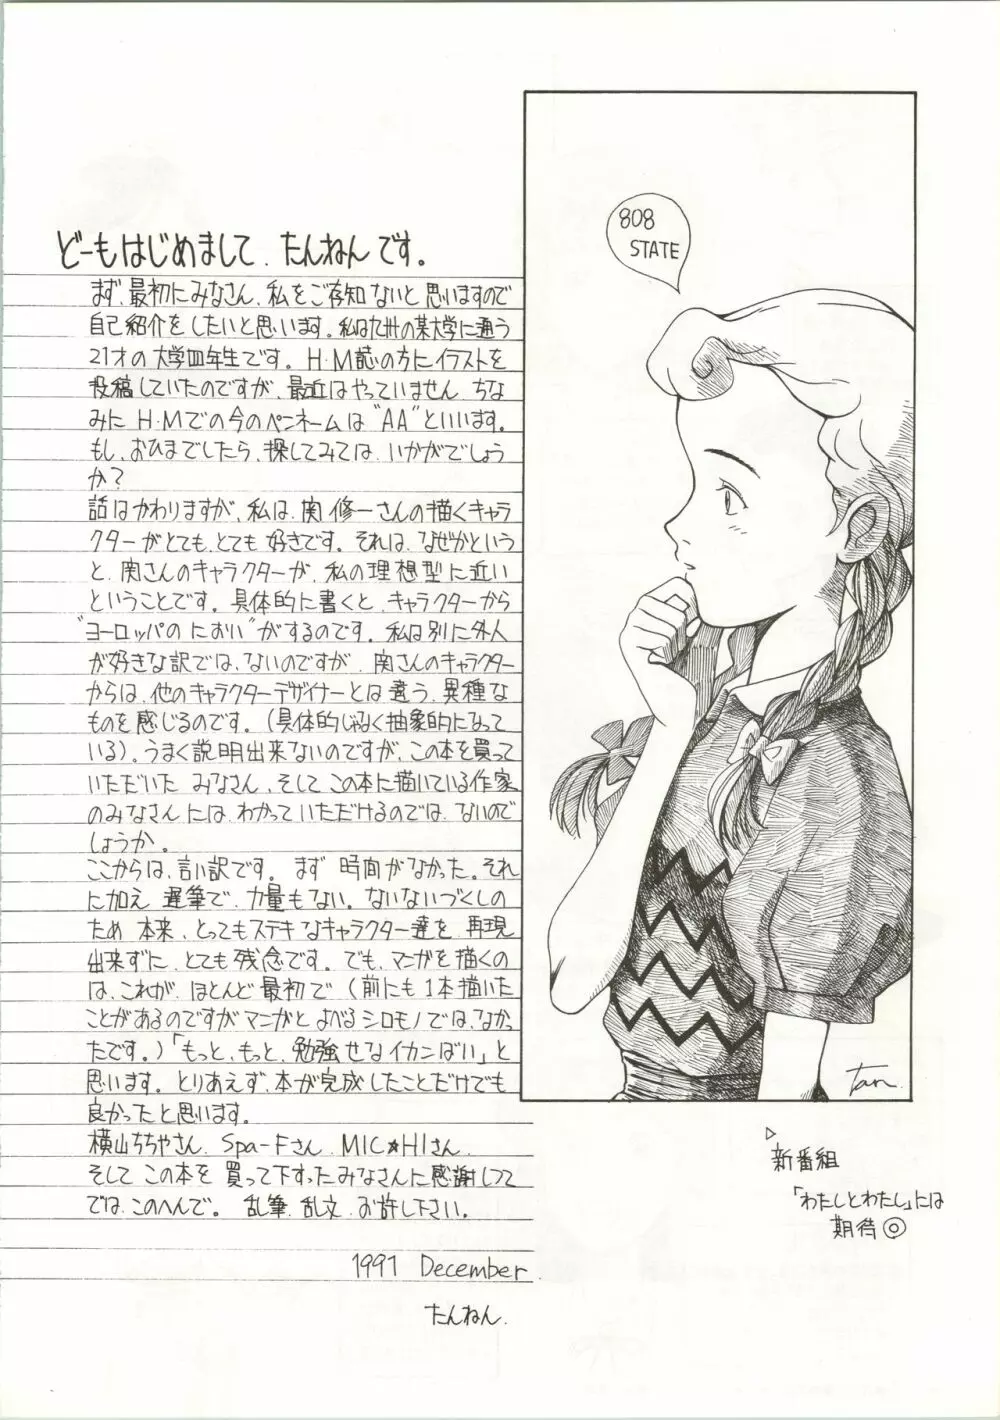 どーもはじめまして、たんねんです。
まず、最初にみなさん、私をご存知ないと思いますので
自己紹介をしたいと思います。私は九州の某大学に通う
21才の大学四年生です。H・M誌の方にイラストを
投稿していたのですが、最近はやっていません。ちな
みに H・Mでの今のペンネームは"AA"といいます。
もし、おひまでしたら、探してみては、いかがでしょう
か?
話はかわりますが、私は、関 修一さんの描くキャラ
クターがとても、とても好きです。それは、なぜかという
と、関さんのキャラクターが、私の理想型に近い
ということです。具体的に書くと、キャラクターから
"ヨーロッパの におい"がするのです。私は別に外人
が好きな訳では、ないのですが、関さんのキャラクター
からは、他のキャラクターデザイナーとは違う、異種な
ものを感じるのです。(具体的じゃなく抽象的になって
いる)。うまく説明出来ないのですが、この本を買って
いただいた みなさん、そして この本に描いている作家
のみなさんには、わかって いただけるのでは、ないので
しょうか。
ここからは、言い訳です。まず 時間がなかった。それ
に加え 遅筆で、力量もない。ないないづくしの
ため 本来、とってもステキなキャラクター達を、再現
出来ずに、とても残念です。でも、マンガを描くの
は、これが、ほとんど最初で(前にも1本描いた
ことがあるのですがマンガと よべる シロモノでは、なかっ
たです。)「もっと、もっと、勉強せなイカンばい」と
思います。とりあえず、本が完成したことだけでも
良かったと思います。
横山ちちゃさん、Spa-Fさん、MIC★HIさん、
そして この本を 買って下すったみなさんに感謝しつつ
では、このへんで。乱筆、乱文、お許し下さい。
1991 December
たんねん.
808
STATE
Tan.
▷
新番組
「わたしとわたし」には
期待◎